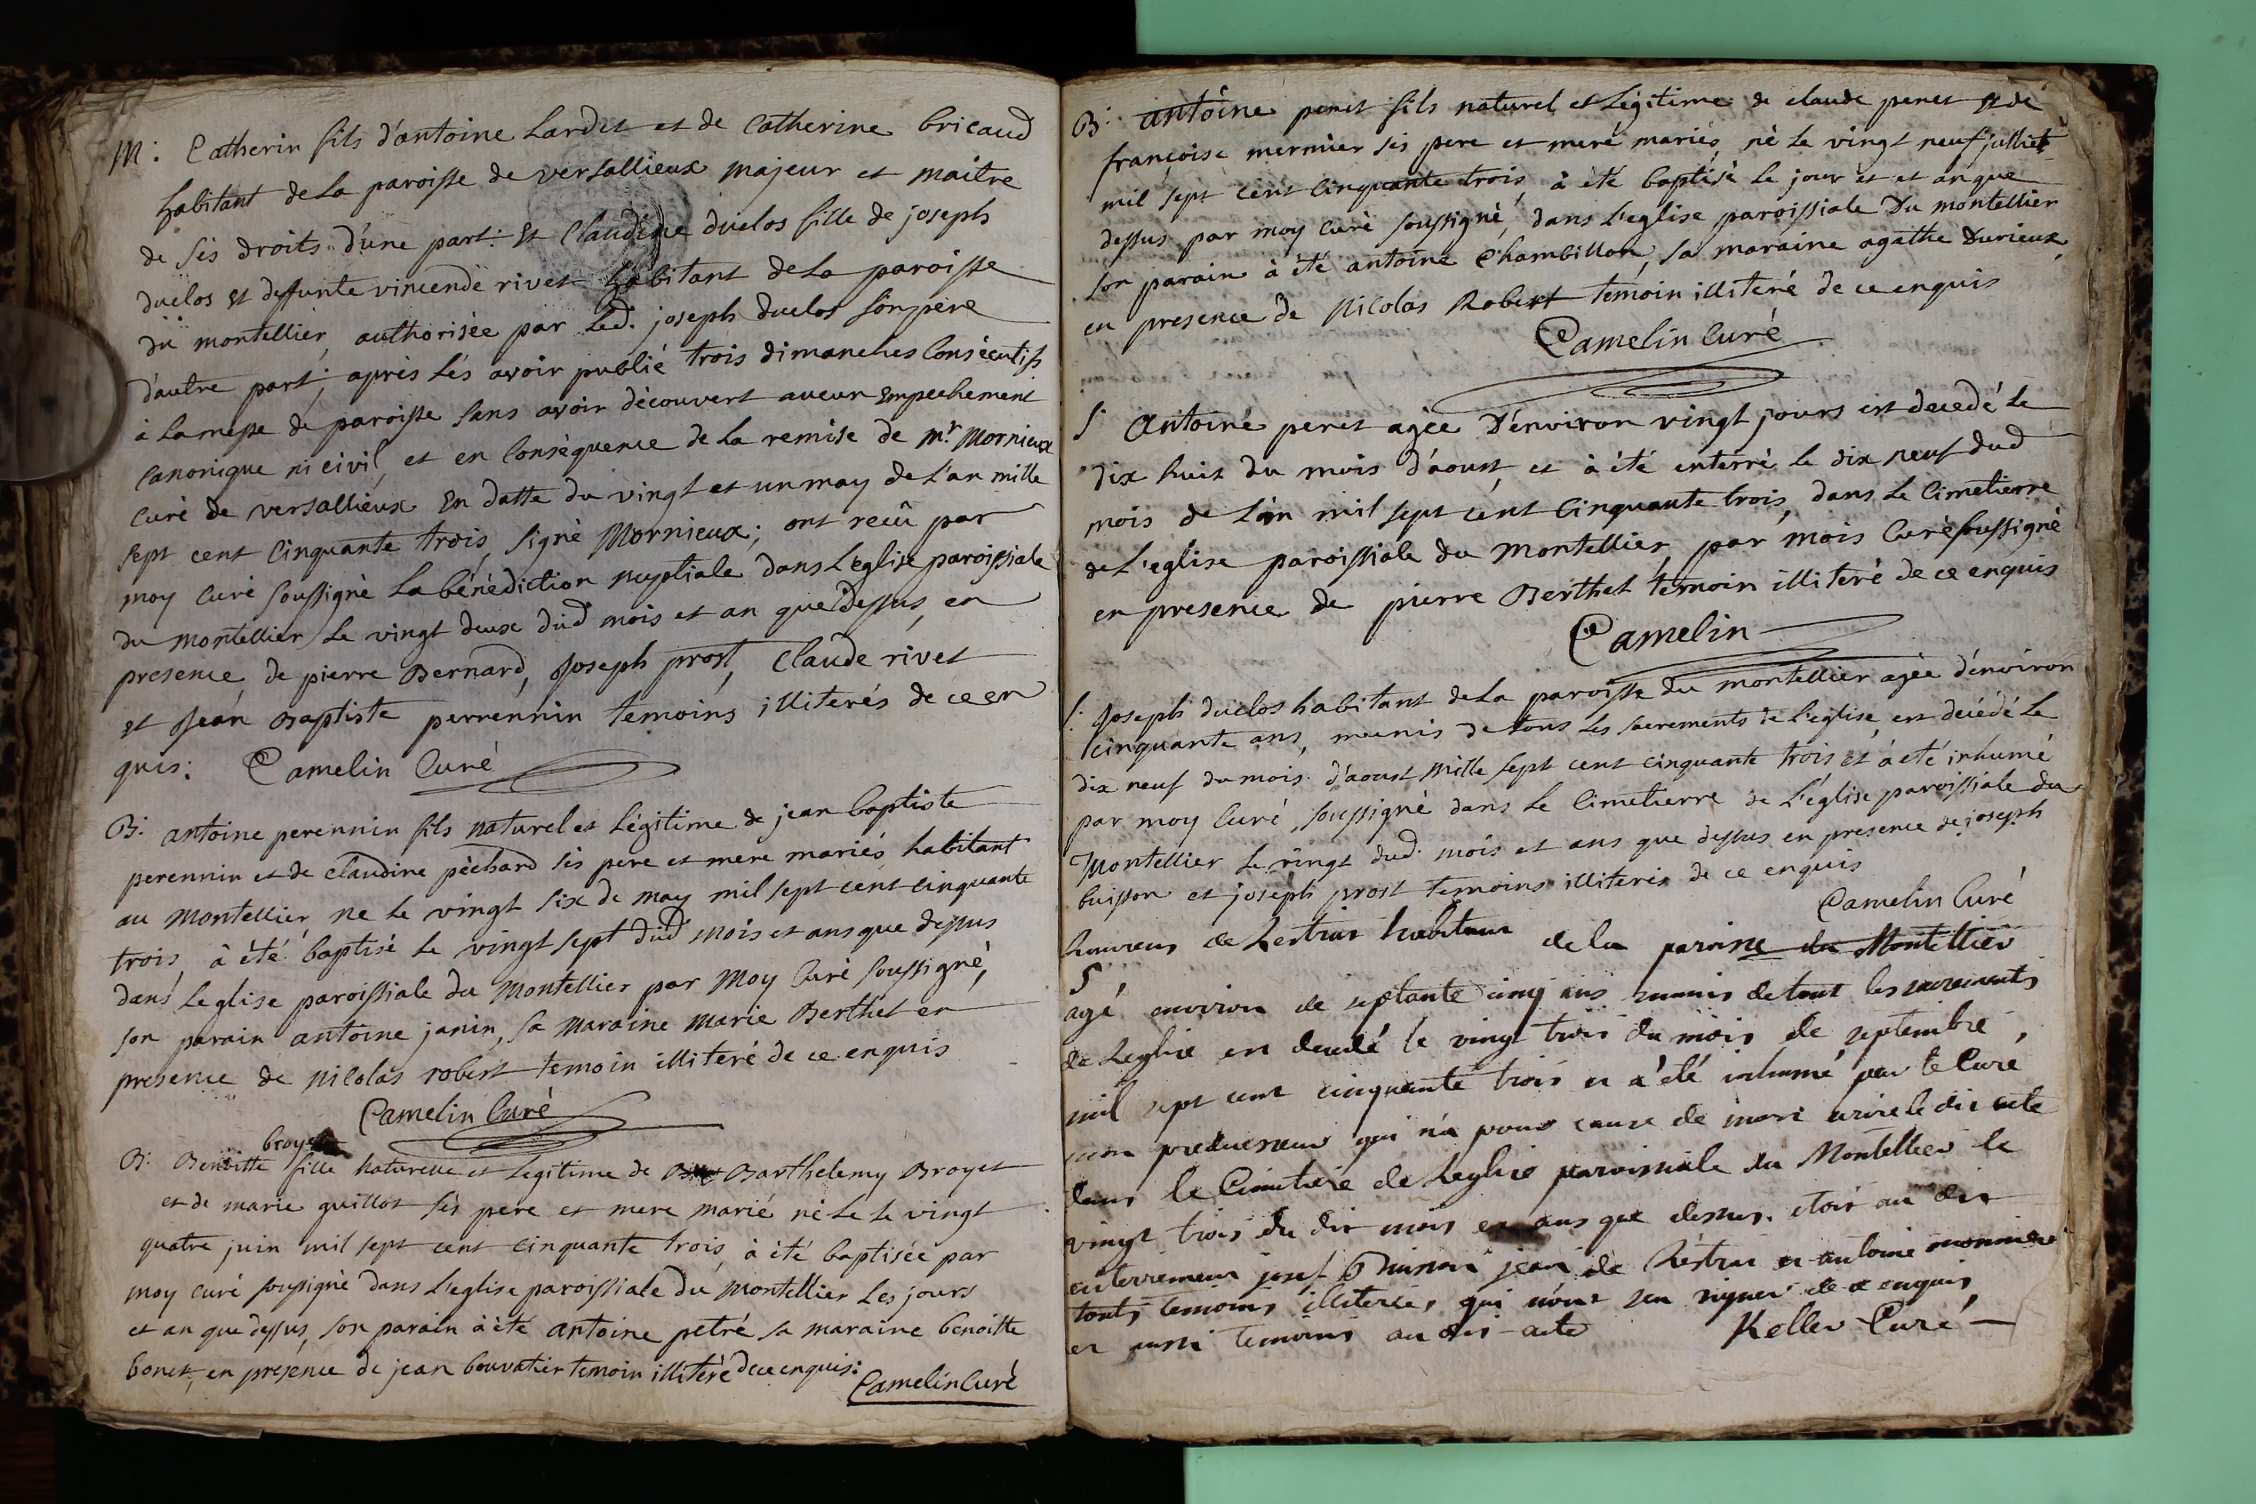 M: Catherin fils d'antoine Lardet et de Catherine bricaud
habitant de la paroisse de versallieux majeur et maitre
de sès droits d'une part: et Claudine duclos fille de joseph
duclos et deffunte vincende rivet habitant de la paroisse
du montellier, authorisèe par led. joseph duclos son pere
d'autre part; après lès avoir publié trois dimanches consècutifs
à la messe de paroisse sans avoir dècouvert aucun empechement
canonique ni civil, et en consèquence de la remise de mr. Mornieux
curè de versallieux en datte du vingt et un may de l'an mille
sept cent cinquante trois, signè Mornieux; ont reçû par
moy curè soussignè la bènèdiction nuptiale dans l'eglise paroissiale
du montellier le vingt deux dud mois et an que dessus, en
presence de pierre Bernard, joseph prost, Claude rivet
et jean Baptiste perrennin temoins illiterés de ce en
quis: Camelin Curé
B: antoine perennin fils naturel et lègitime de jean baptiste
perennin et de claudine pèchard sès pere et mere mariés habitant
au montellier, ne le vingt six de may mil sept cent cinquante
trois, à étè baptisè le vingt sept dud mois et ans que dessus
dans l'eglise paroissiale du montellier par moy curè soussignè,
son parain antoine janin, sa maraine marie Berthet en
presence de nicolas robert temoin illiterè de ce enquis
Camelin Curè
broyet
B: Benoitte fille naturelle et legitime de Barthelemy Broyet
et de marie guillot sès pere et mere mariè nè le le vingt
quatre juin mil sept cent cinquante trois, à étè baptisèe par
moy curè soussignè dans l'eglise paroissiale du montellier les jours
et an que dessus, son parain à étè antoine petré sa maraine benoitte
bonet, en presence de jean bouvatier temoin illiterè de ce enquis:
Camelin Curè
B: antoine peret fils naturel et lègitime de claude peret et de
françoise mermier sès pere et mere mariés, nè le vingt neuf julliet
mil sept cent cinquante trois, à étè baptisè le jour et et an que
dessus par moy curè soussignè, dans l'eglise paroissiale du montellier
son parain à étè antoine chambillon, sa maraine agathe durieux,
en presence de nicolas Robert temoin illiterè de ce enquis
Camelin Curè
S Antoine peret agèe d'environ vingt jours est decedé le
dix huit du mois d'aoust, et à été enterrè le dix neuf dud
mois de l'an mil sept cent cinquante trois, dans le cimetierre
de l'eglise paroissiale du montellier, par mois curè soussignè
en presence de pierre Berthet temoin illiterè de ce enquis
Camelin
S: joseph duclos habitant de la paroisse du montellier agèe d'environ
cinquante ans, munis de tous les sacrements de l'eglise, est decédé le
dix neuf du mois d'aoust mille sept cent cinquante trois et à eté inhumé
par moy curé soussignè dans le cimetierre de l'église paroissiale du
Montellier le vingt dud. mois et ans que dessus en presence de joseph
buisson et joseph prost temoins illiterés de ce enquis
Camelin Curè
de Lestrat habitant de la paroisse du Montellier
S
agé environ de septante cinq ans munis de tout les sacrements
de Leglise est decedé le vingt trois du mois de septembre,
mil sept cent cinquante trois et a été inhumé par le Curé
mon predecesseur qui n'a pour cause de mort ecrire le dit acte
dans le Cimetiere de Leglise paroissiale du Montellier le
vingt trois du dit mois et ans que dessus. etoit au dit
enterrement josef Buisson jean de Lestrat et antoine
touts temoins illiterés, qui n'ont seu signer de ce enquis,
et aussi temoins au dis acte Keller Curé